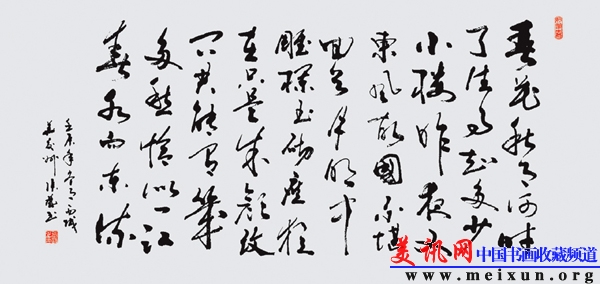 春花秋月何时
了往事知多少
小楼昨夜又
東風故國不堪
回首月明中
雕栏玉砌应犹
在只是朱颜改
问君能有几
多愁恰似一江
春水向东流
美讯网 中国书画收藏频道
www.meixun.org